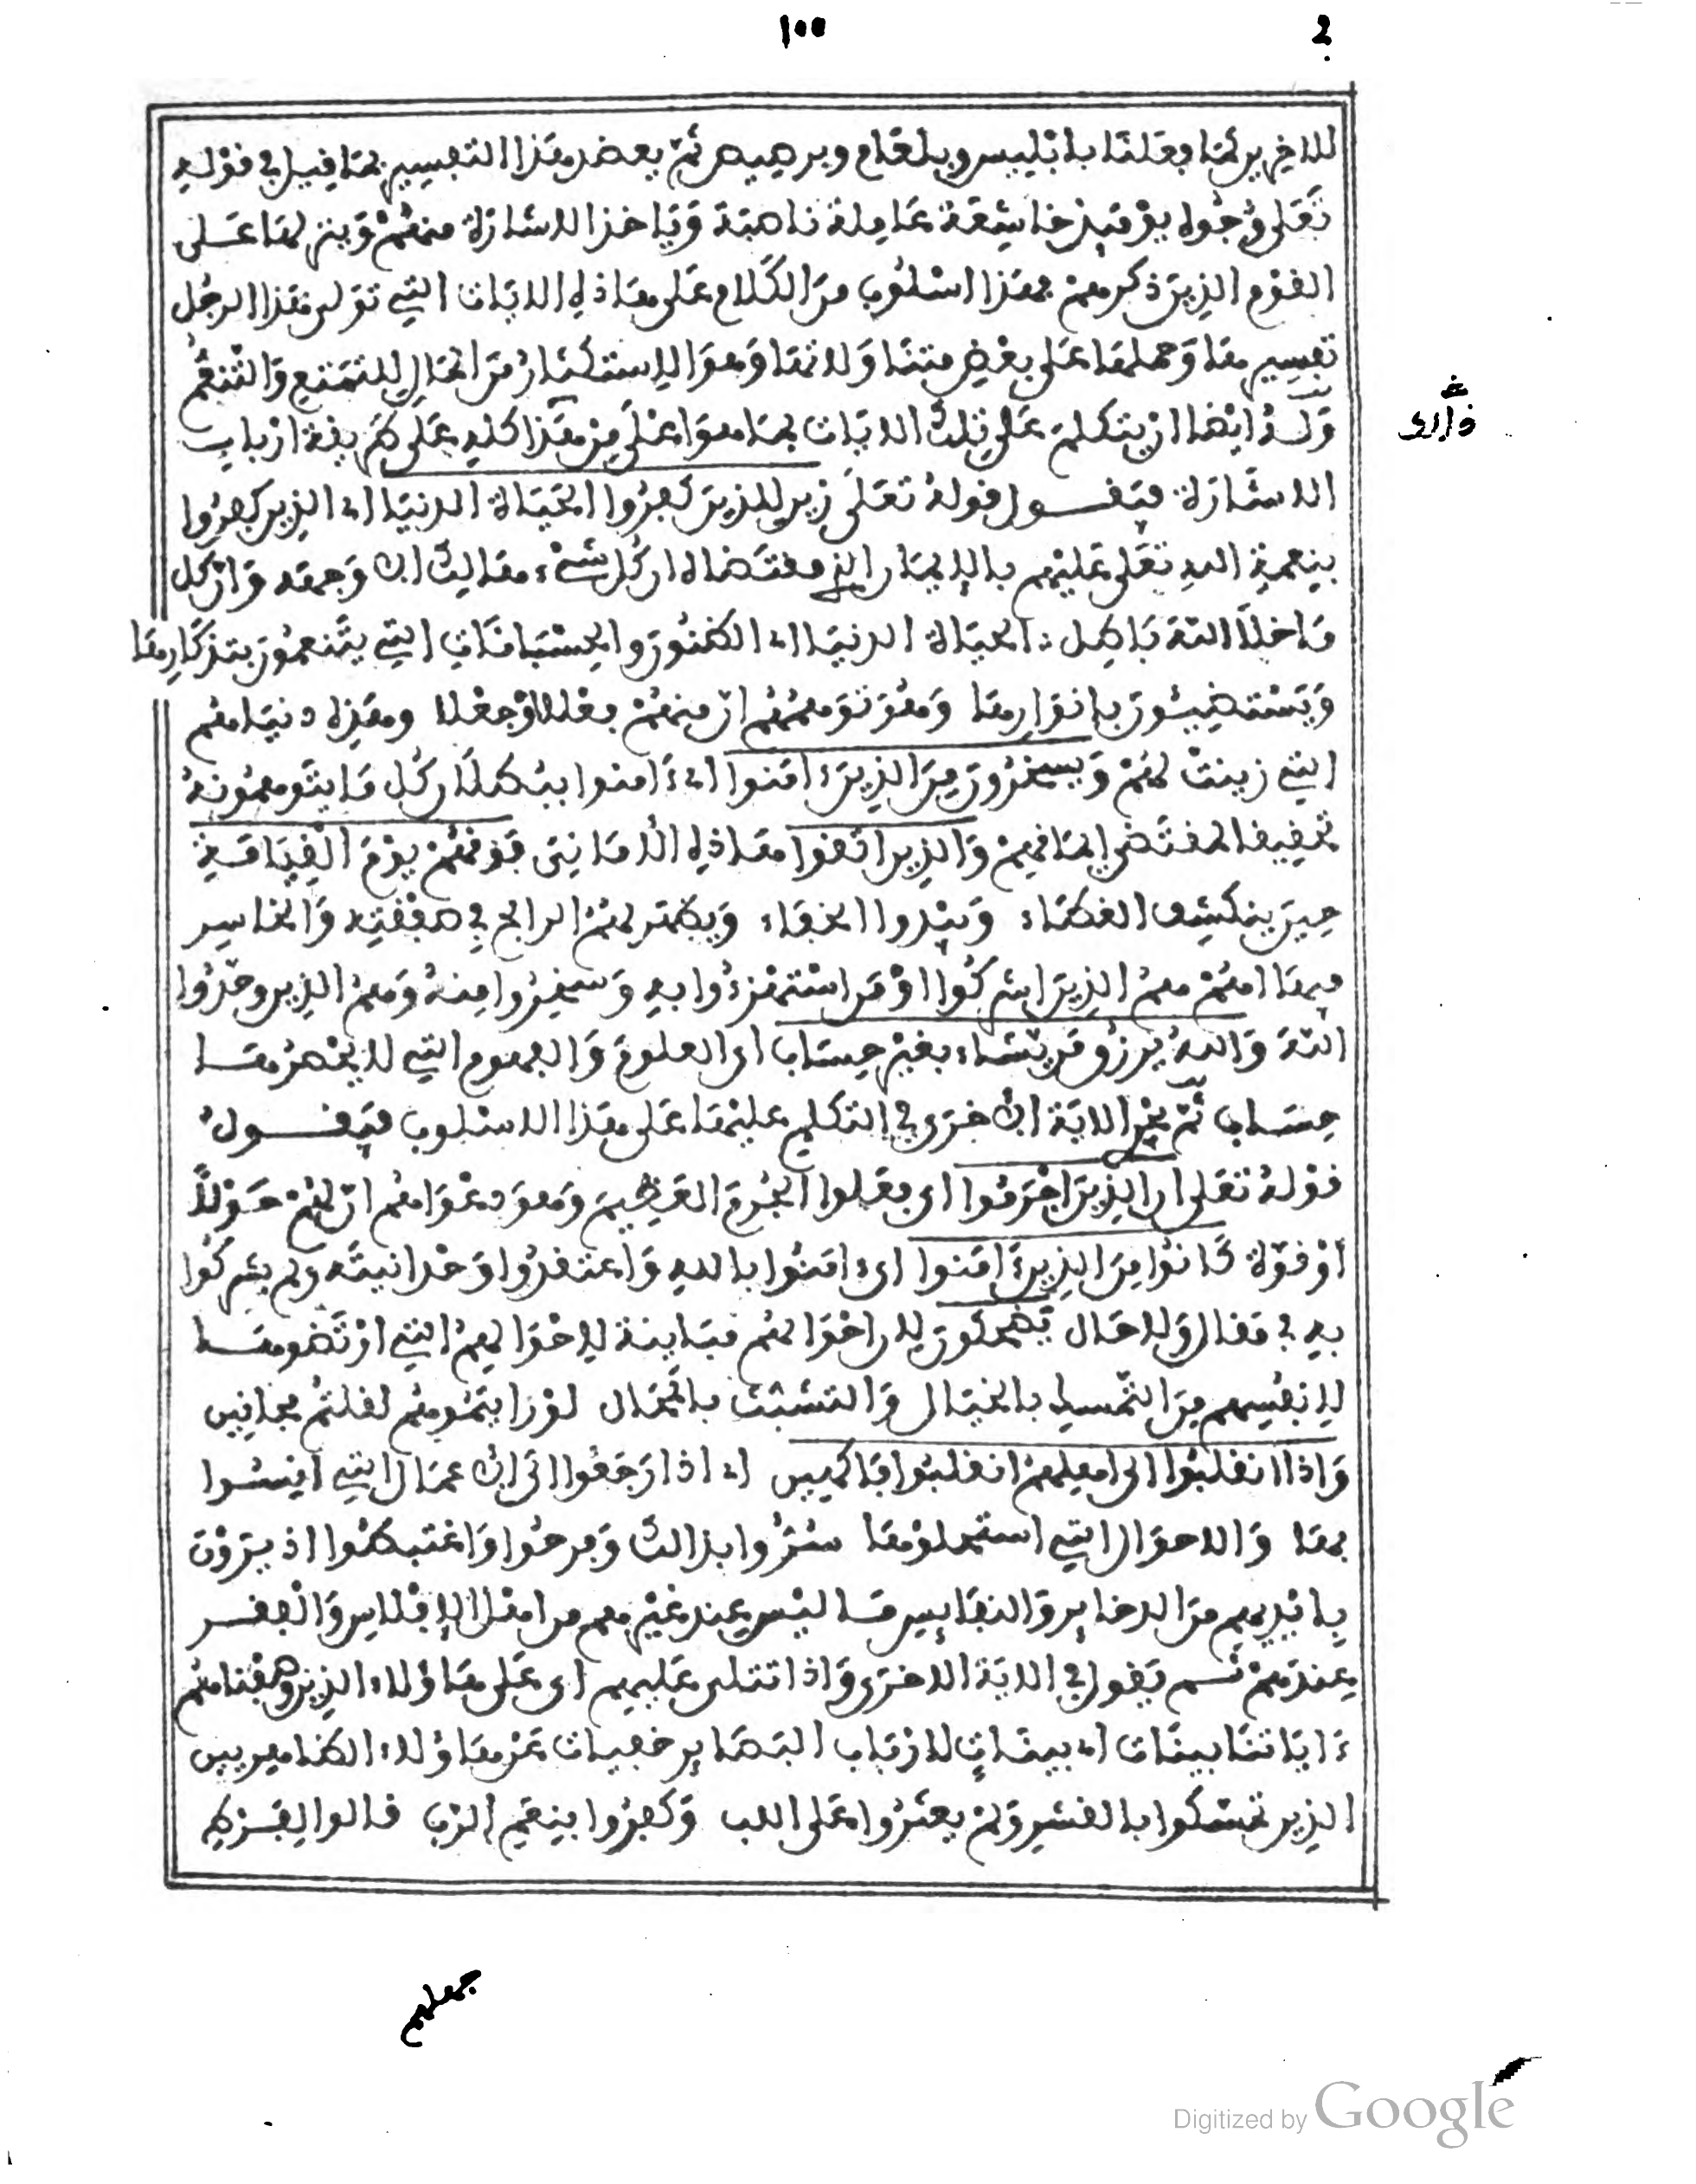 ١٠٠
للاخرين كما فعلنا بابليس وبلعام وبرصيص ثم يعضد هذا التفسير بما قيل في قوله
تعلى وجوه يومئذ خاشعة عاملة ناصبة وياخذ الاشارة منهم وينزلها على
القوم الذين ذكرهم بهذا اسلوب من الكلام على هاذه الايات التي تولى هذا الرجل
تفسيرها وحملها على بعض
ايضا ان يتكلم على تلك الايات بما هو اعلى من هذا كله على طريقة ارباب
الاشارة فيقول قوله تعلى زين للذين كفروا الحياة الدنيا اي الذين كفروا
بنعمة الله تعلى عليهم بالايمان الذي مقتضاه ان كل شيء هالك الا وجهه وان كل
ما خلا الله باطل الحياة الدنيا اي الظنون والحسبانات التي يتنعمون بتذكارها
ويستضيئون بانوارها وهو توهمهم ان منهم فعلا وجعلا وهذه دنياهم
التي زينت لهم ويسخرون من الذين ءامنوا اي ءامنوا ببطلان كل ما يتوهمونه
تحقيقا لمقتضى ايمانهم والذين اتقوا هاذه الاماني فوقهم يوم القيامة
حين ينكشف الغطاء ويبدوا الخفاء ويظهر لهم الرابح في صفقته والخاسر
فيها اهم هم الذين اشركوا او من استهزءوا به وسخروا منه وهم الذين وحدوا
الله والله يرزق من يشاء بغير حساب اي العلوم والفهوم التي لا يحصرها
حساب ثم الاية الاخرى في التكلم عليها على هذا الاسلوب فيقول
قوله تعلى ان الذين اجرموا اي فعلوا الجرم العظيم وهو دعواهم ان لهم حولا
او قوة كانوا من الذين ءامنوا اي ءامنوا بالله واعتقدوا وحدانيته ولم يشركوا
به في مقال ولا حال يضحكون لان احوالهم مباينة لاحوالهم التي ارتضوها
لانفسهم من التمسك بالخيال والتشبث بالمحال لو رايتموهم لقلتم مجانين
واذا انقلبوا الى اهلهم انقلبوا فاكهين اي اذا رجعوا الى الاعمال التي انسوا
بها والاحوال التي استحلوها سروا بذالك وفرحوا واغتبطوا اذ يرون
بايديهم من الذخاير والنفايس ما ليس عند غيرهم من اهل الافلاس والفقر
عندهم ثم يقول في الاية الاخرى واذا تتلى عليهم اي على هاؤلاء الذين وصفناهم
ءاياتنا بينات اي بينات لارباب البصاير خفيات عن هاؤلاء الظاهريين
الذين تمسكوا بالقشر ولم يعثروا على اللب وكفروا بنعم الرب قالوا
Digitized by Google